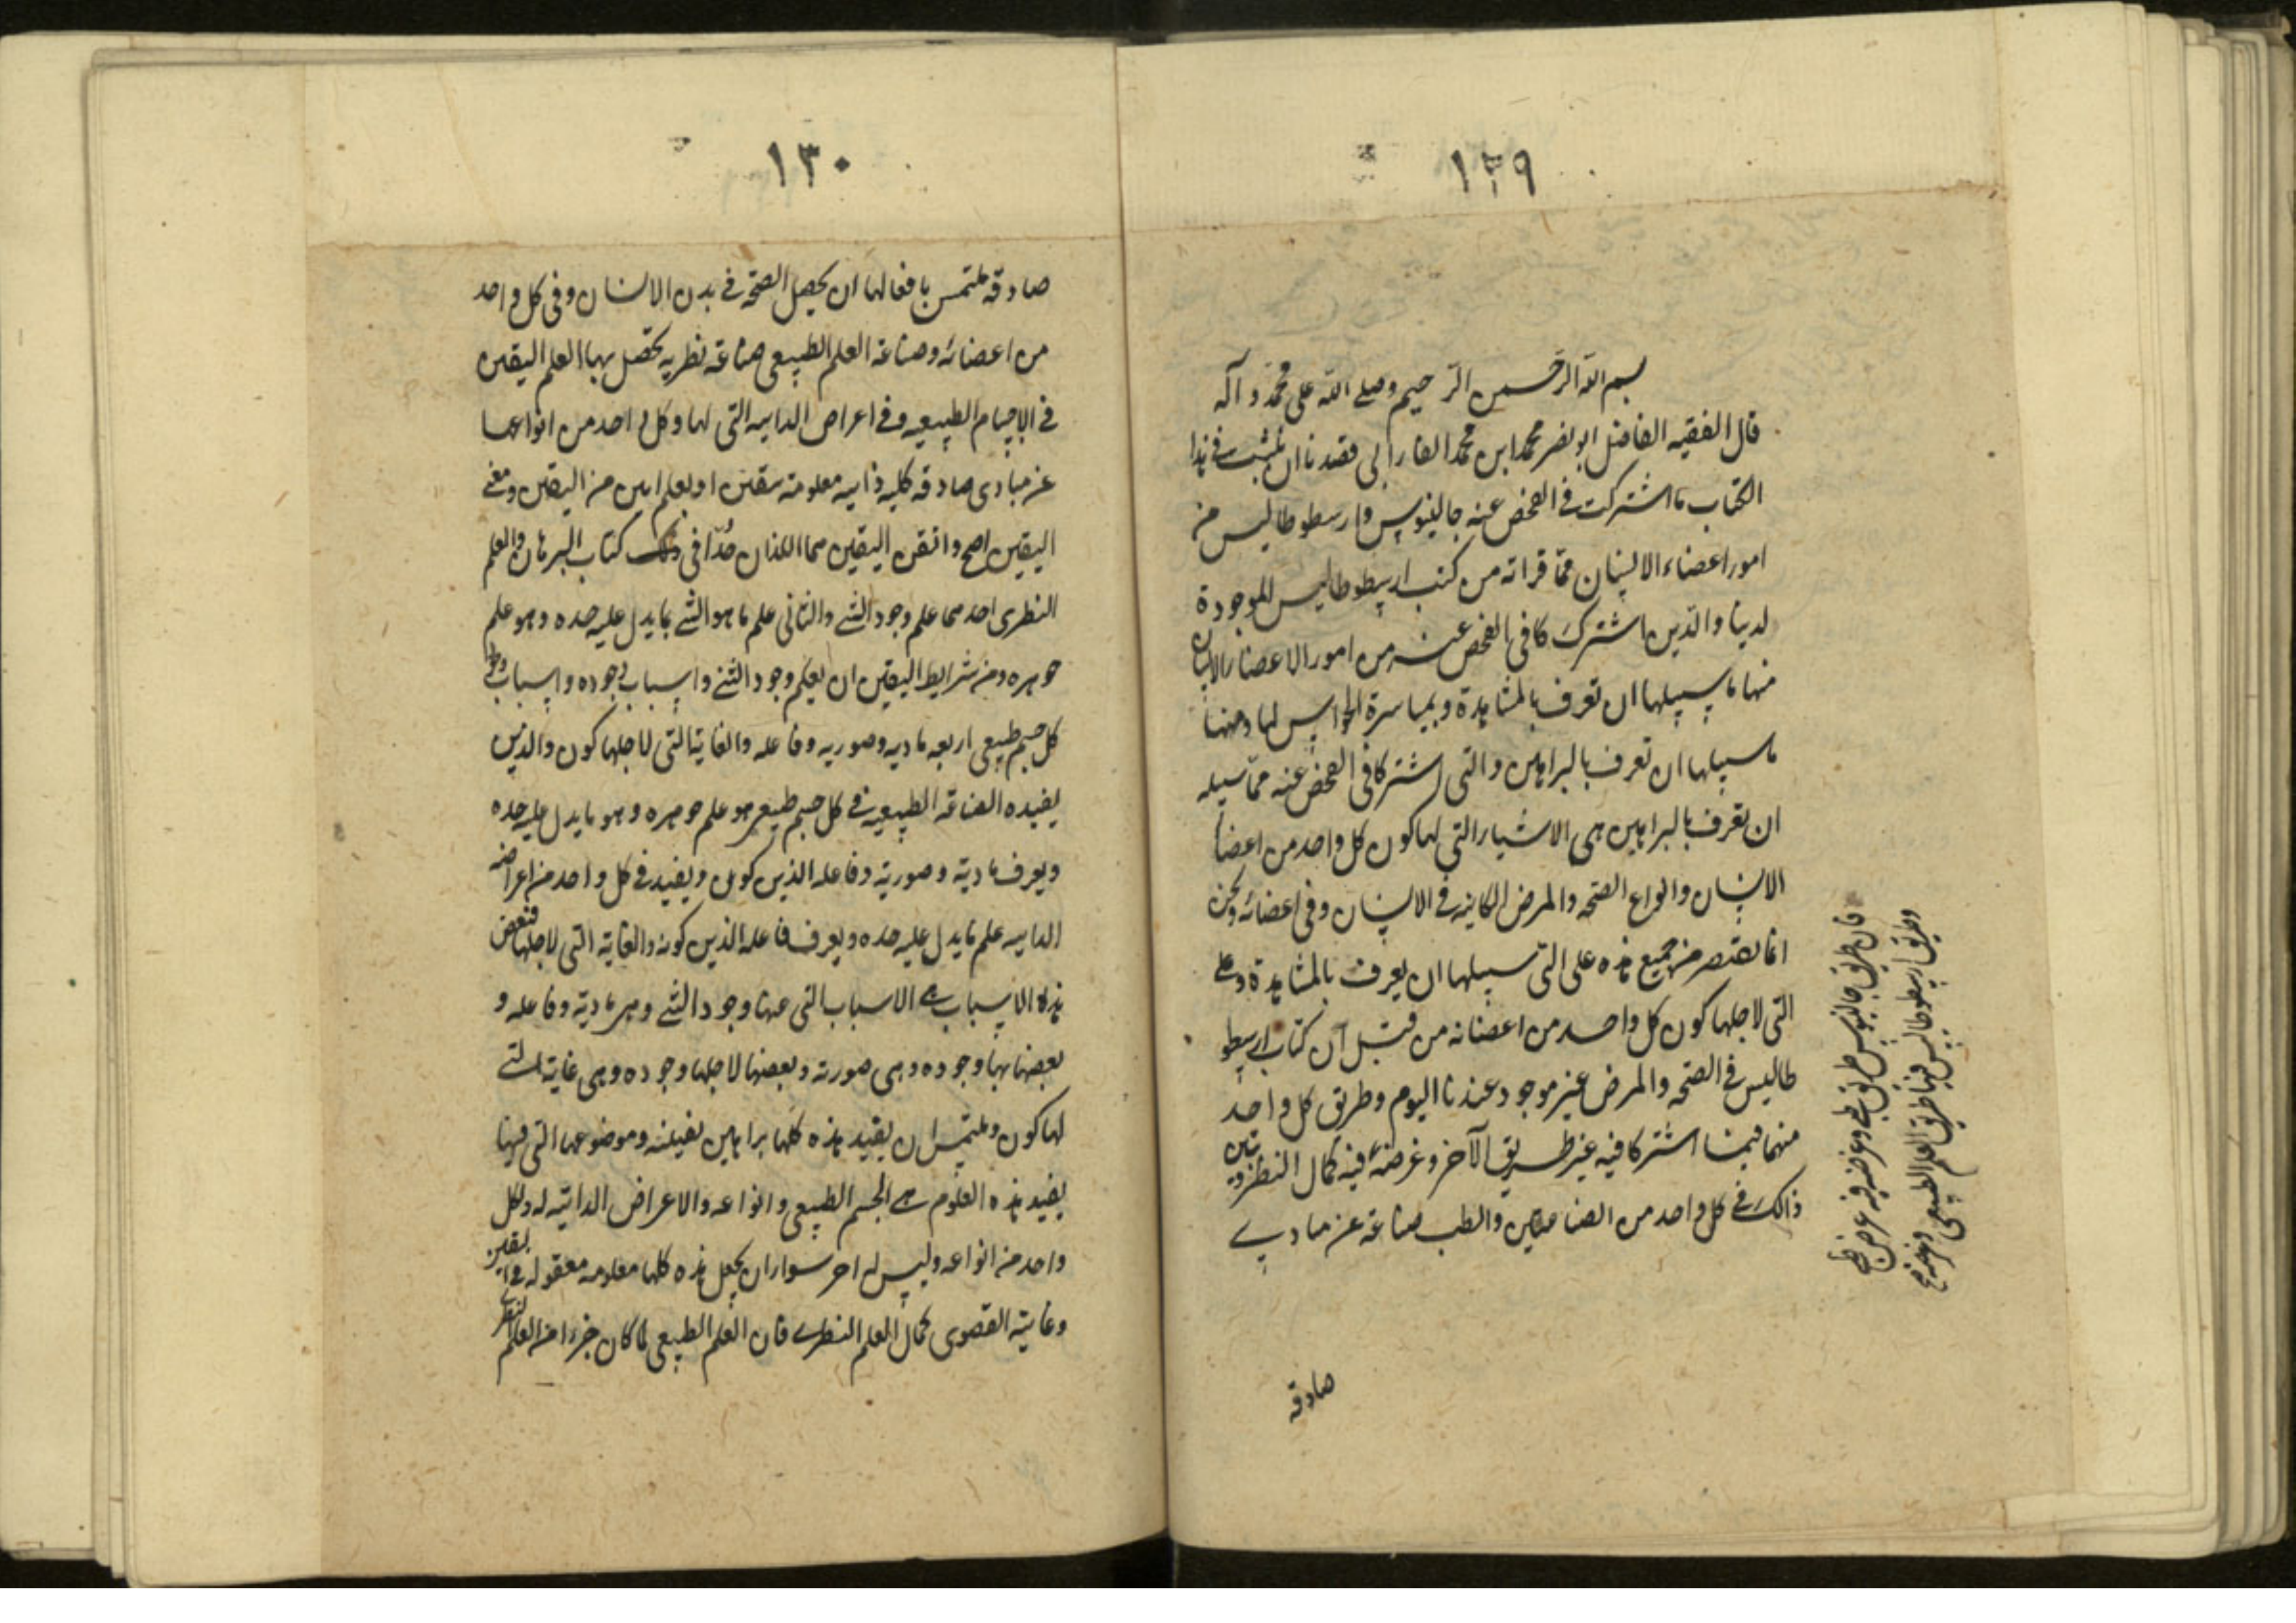 ١٢٩
بسم الله الرحمن الرحيم وصلى الله على محمد وآله
قال الفقيه الفاضل ابو نصر محمد ابن محمد الفارابي قصدنا ان نثبت في هذا
الكتاب ما اشتركت في الفحص عنه جالينوس وارسطوطاليس من
امور اعضاء الانسان مما قراته من كتب ارسطوطاليس الموجودة
لدينا والذين اشتركا في الفحص عنه من امور الاعضاء الانسان
منها ما سبيلها ان تعرف بالمشاهدة وبمباشرة الحواس لها ومنها
ما سبيلها ان تعرف بالبراهين والتى اشتركا في الفحص عنه مما سبيله
ان تعرف بالبراهين هى الاشياء التى لها كون كل واحد من اعضا
الانسان وانواع الصحه والمرض الكاينه في الانسان وفي اعضائه ونحن
انما نقتصر من جميع هذه على التى سبيلها ان يعرف بالمشاهدة وعلى
التى لاجلها كون كل واحد من اعضائه من قبل ان كتاب ارسطو
طاليس في الصحه والمرض غير موجود عندنا اليوم وطريق كل واحد
منهما فيما اشتركا فيه غير طريق الآخر وغرضه فيه كمال النظر وتبين
ذالك في كل واحد من الصناعتين والطب صناعة عن مبادي
فان طريق جالينوس طريق طبى وغرضه فيه غرض طبى
وطريق ارسطوطاليس فيها طريق العلم الطبيعى وغرضه
صادقه
١٣٠
صادقه ملتمس بافعالها ان يحصل الصحة في بدن الانسان وفى كل واحد
من اعضائه وصناعة العلم الطبيعى صناعة نظريه تحصل بها العلم اليقين
في الاجسام الطبيعيه وفى اعراض الذاتيه التى لها وكل واحد من انواعها
عن مبادى صادقه كليه ذاتيه معلومة بيقين او يعلم من اليقين ومعنى
اليقين اصح واتقن اليقين هما اللذان حُدّا في كتاب البرهان والعلم
النظرى احدهما علم وجود الشئ والثانى علم ما هو الشئ بما يدل عليه حده وهو علم
جوهره ومن شرايط اليقين ان يعلم وجود الشئ واسباب وجوده واسباب وجود
كل جسم طبيعى اربعه ماديه وصوريه وفاعله والغاية التى لاجلها كون والذين
يفيده الصناعة الطبيعيه في كل جسم طبيعى هو علم جوهره وهو ما يدل عليه حده
ويعرف مادية وصورية وفاعله الذين كون ويفيد في كل واحد من اعراضه
الذاتيه علم ما يدل عليه حده ويعرف فاعله الذين كونه والغاية التى لاجلها فبعض
هذه الاسباب هى الاسباب التى عنها وجود الشئ وهى مادية وفاعله و
بعضها بها وجوده وهى صورته وبعضها لاجلها وجوده وهى غاية التى
لها كون وملتمس ان يفيد هذه كلها براهين يقينه وموضوعها التى فيها
يفيد هذه العلوم هى الجسم الطبيعى وانواعه والاعراض الذاتيه له ولكل
واحد من انواعه وليس له اخر سوا ان يجعل هذه كلها معلومه معقوله في اليقين
وغايته القصوى كمال العلم النظرى فان العلم الطبيعى لما كان جزءا من العلم النظرى